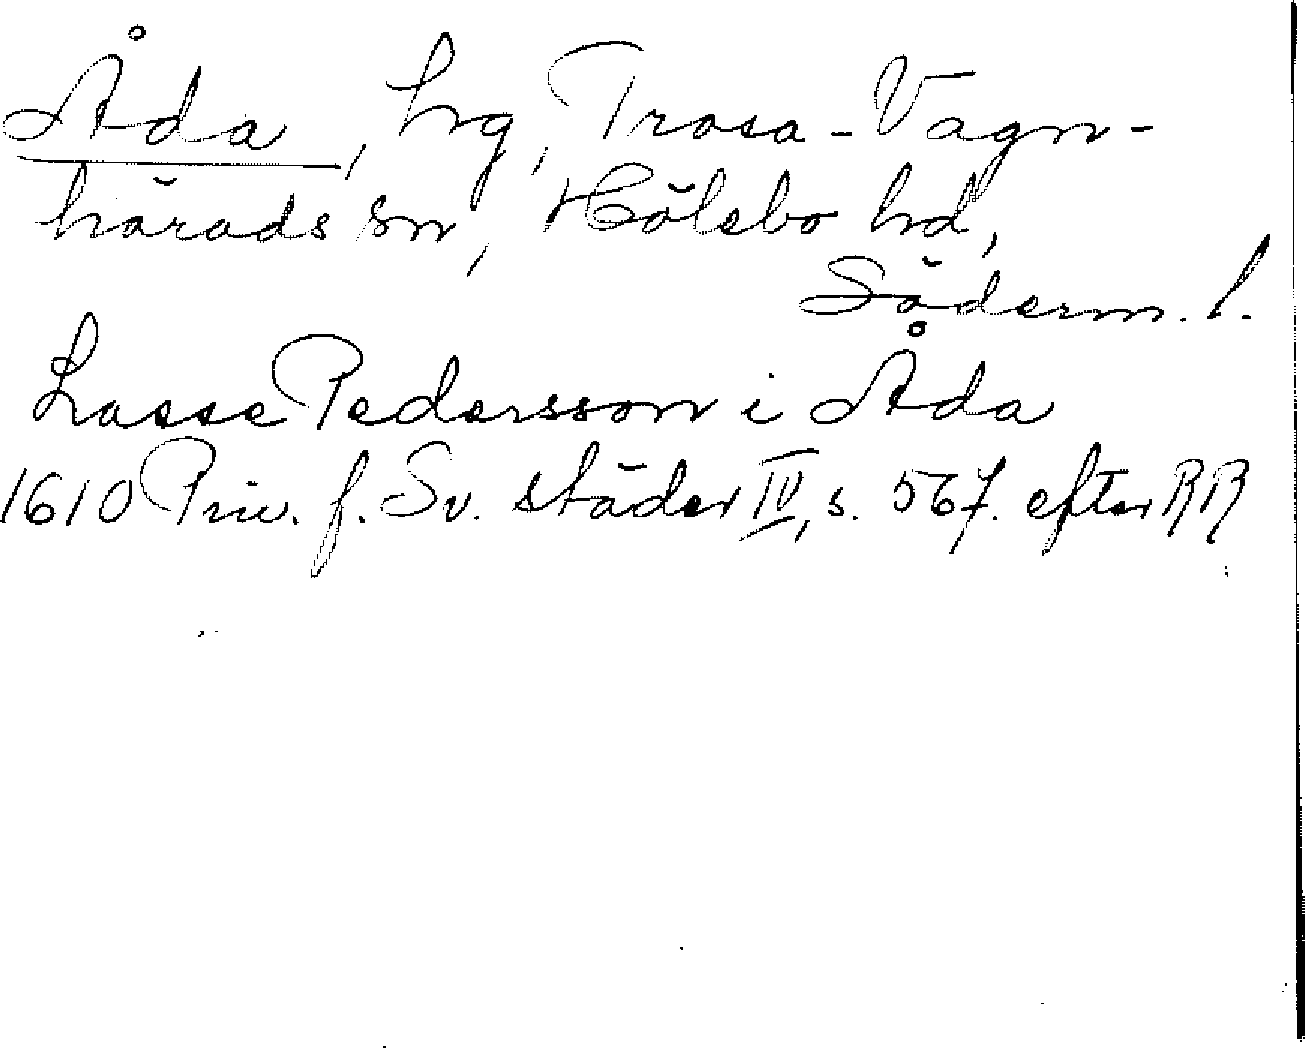 Åda, hg, Trosa-Vagn-
härads sn, Hölebo hd,
Söderm. l.
Lasse Pedersson i Åda
1610 Priv. f. Sv. städer IV, s. 567. efter RR